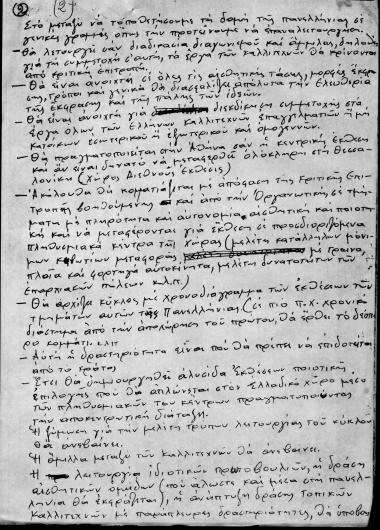 ② (2)
Στο μεταξύ να τοποθετήσουμε τη δομή της πανελλήνιας σε
γενικές γραμμές όπως την προτείνουμε να επαναλειτουργήσει.
- Θα λειτουργεί σαν διαδικασία διαγωνισμού και άμιλλας, δηλαδή
για τη συμμετοχή σ' αυτή, το έργο των καλλιτεχνών θα κρίνονται
από κριτική επιτροπή.
- Θα είναι ανοιχτή σε όλες τις αισθητικές τάσεις, μορφές έκφρα-
σης, τρόπο και γενικά θα διασφαλίζει απόλυτα την ελευθερία
της έκφρασης και της πάλης των ιδεών.
- Θα είναι ανοιχτή για διεκδίκηση συμμετοχής στα
έργα όλων των Ελλήνων καλλιτεχνών επαγγελματιών ή μη
κατοίκων εσωτερικού ή εξωτερικού και ομογενών.
- Θα πραγματοποιείται στην Αθήνα σαν η κεντρική έκθεση
και αν είναι δυνατό να μεταφερθεί ολόκληρη στη Θεσσα-
λονίκη (χώρος Διεθνούς Εκθεσης)
- Ακόλουθα θα κομματιάζεται με απόφαση της κριτικής επι-
τροπής βοηθούμενης και από την Οργανωτική σε τμή-
ματα με πληρότητα και αυτονομία αισθητική και ποιοτι-
κή και να μεταφέρονται για έκθεση σε προσδιορισμένα
πληθυσμιακά κέντρα της χώρας (μελέτη κατάλληλων μόνι-
μων κιβωτίων μεταφοράς, με τραίνα,
πλοία και φορτηγά αυτοκίνητα, μελέτη δυνατοτήτων των
επαρχιακών πόλεων κ.λ.π.)
- Θα αρχίζει κύκλος με χρονοδιάγραμμα των εκθέσεων των
τμημάτων αυτών της Πανελλήνιας (σε πιο π.χ. χρονικό
διάστημα από την αποχώρηση του πρώτου, θα έρθει το δεύτε-
ρο κομμάτι. κ.λ.π
- Αυτή η δραστηριότητα είναι που θα πρέπει να επιδοτείται
από το κράτος
- Έτσι θα δημιουργηθεί αλυσίδα Εκθέσεων ποιοτικής
επιλογής που θα απλώνεται στον Ελλαδικό χώρο μέσω
των πληθυσμιακών του κέντρων πραγματοποιώντας
την αποκεντρωτική διάταξη.
Η ζύμωση για την μελέτη τρόπων λειτουργίας του κύκλου
θα ανεβαίνει.
Η άμιλλα μεταξύ των καλλιτεχνών θα ανεβαίνει.
Η λειτουργία ιδιωτικών πρωτοβουλιών, η δράση
αισθητικών ομάδων (που άλλωστε και μέσα στη πανελ-
λήνια θα εκφράζεται), η ανάπτυξη δράσης τοπικών
καλλιτεχνών με παράπλευρες δραστηριότητες, θα υποβοη